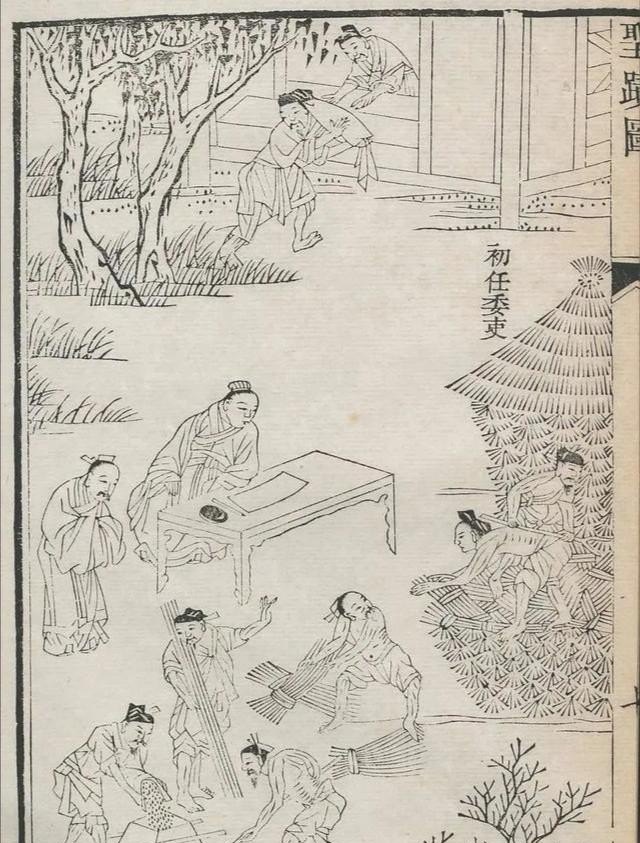 聖蹟圖
初任委吏